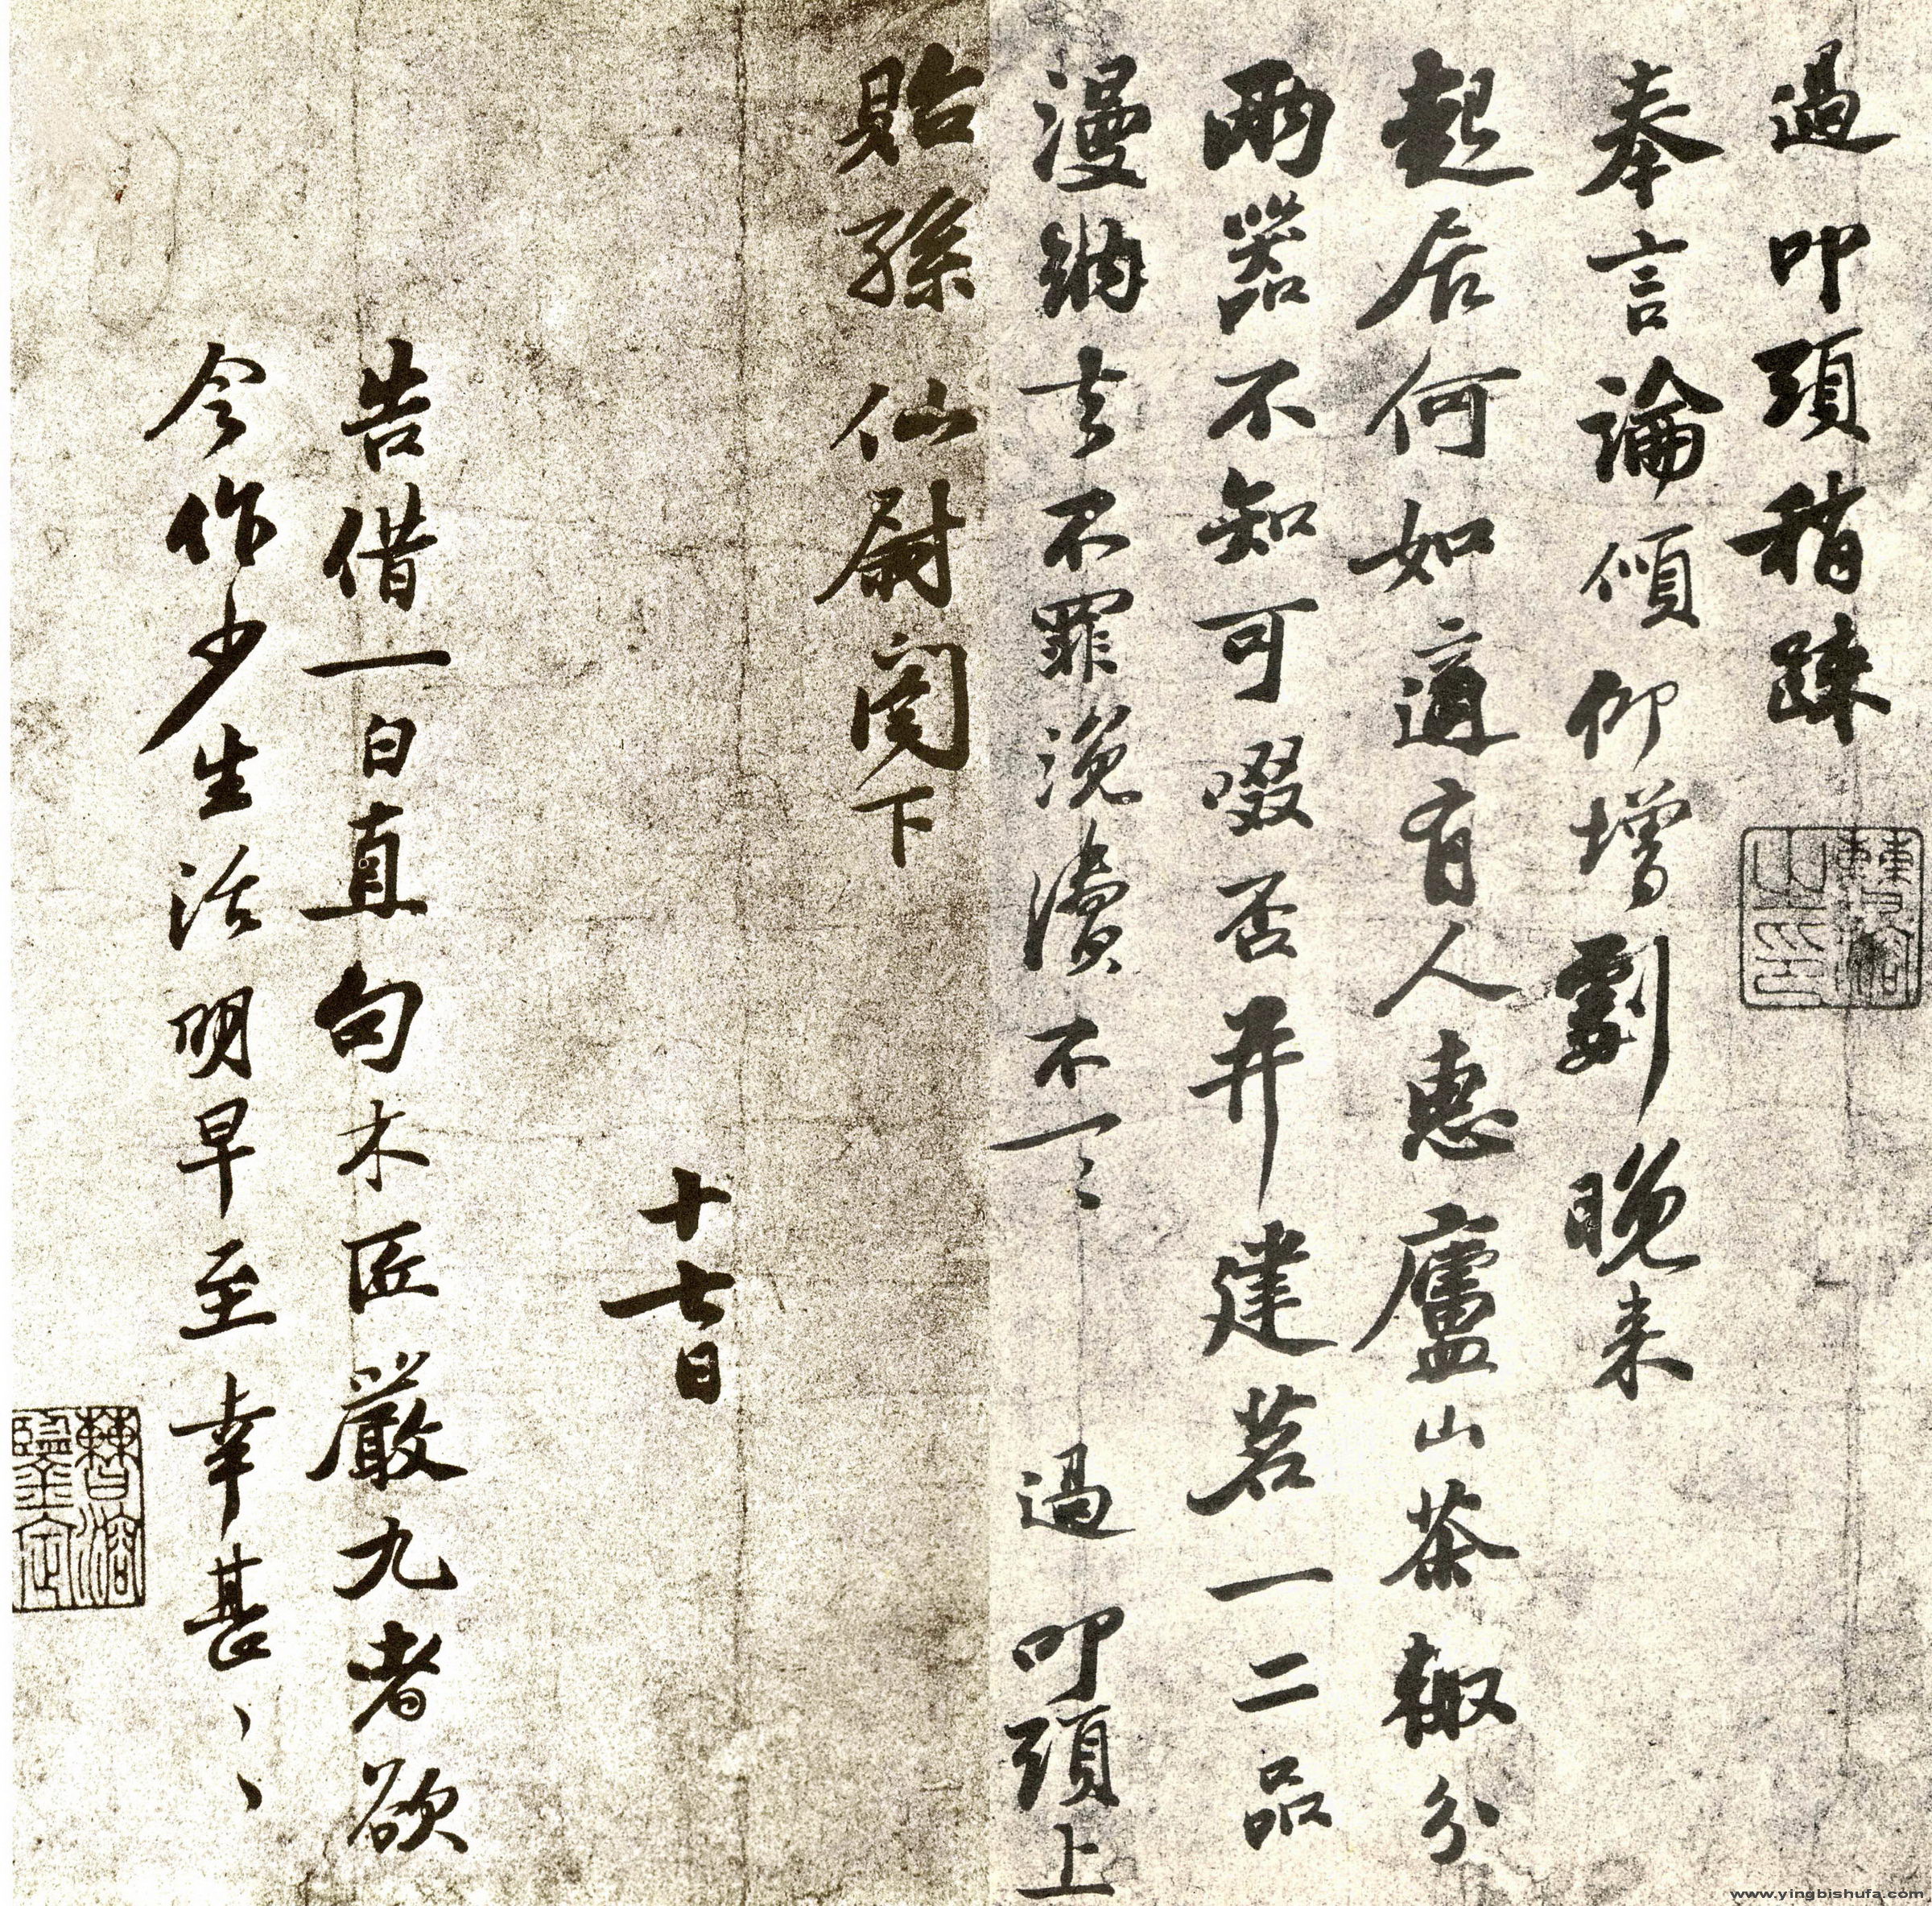 過叩頭稍疎
奉言論傾仰增劇晚来
起居何如適有人惠廬山茶輙分
兩器不知可啜否并建茗一二品
漫納去不罪浼瀆不一一　過叩頭上
貽孫仙尉閤下
十七日
告借一白直句木匠嚴九者欲
令作少生活明早至幸甚〻〻
www.yingbishufa.com